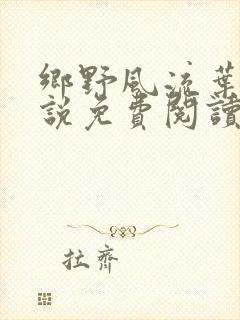 鄉野風流葉
說免費閱讀
拉齊